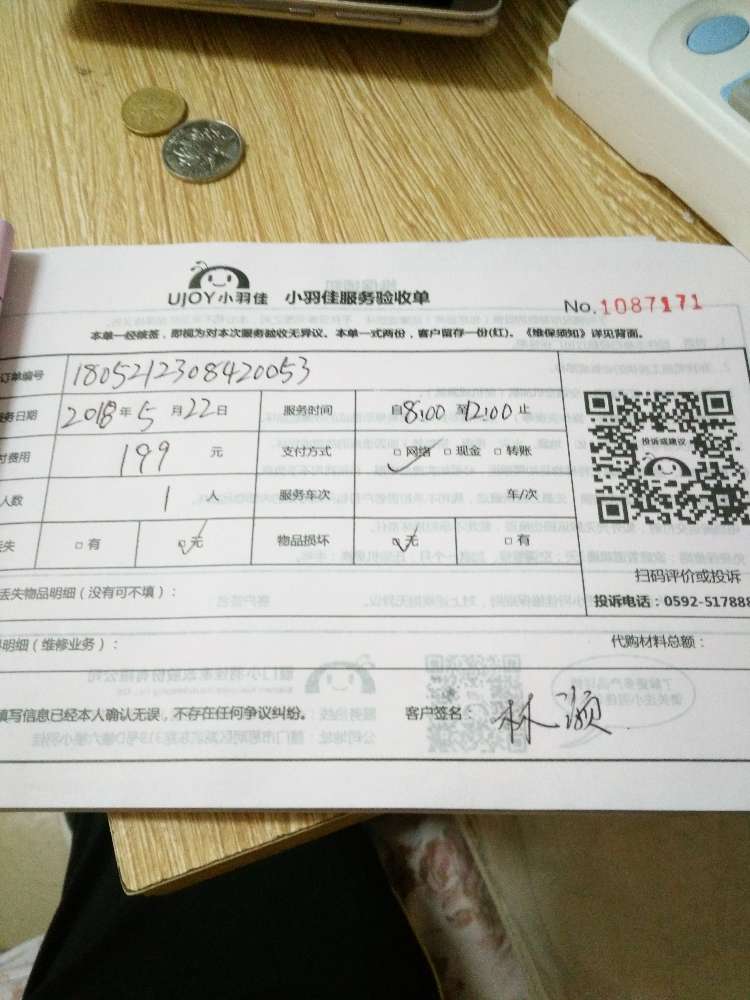 UJOY小羽佳 小羽佳服务验收单 No.1087171
本单一经续签，即视为对本次服务验收无异议。本单一式两份，客户留存一份(红)。《维保须知》详见背面。
订单编号 1805212308420053
务日期 2018年5月22日 服务时间 自8:00至12:00止
付费用 199 元 支付方式 □网络 □现金 □转账
人数 1人 服务车次 车/次
丢失 □有 □无 物品损坏 □无 □有
投诉或建议
扫码评价或投诉
丢失物品明细（没有可不填）： 投诉电话：0592-517888
明细（维修业务）： 代购材料总额：
填写信息已经本人确认无误，不存在任何争议纠纷。 客户签名： 林灏